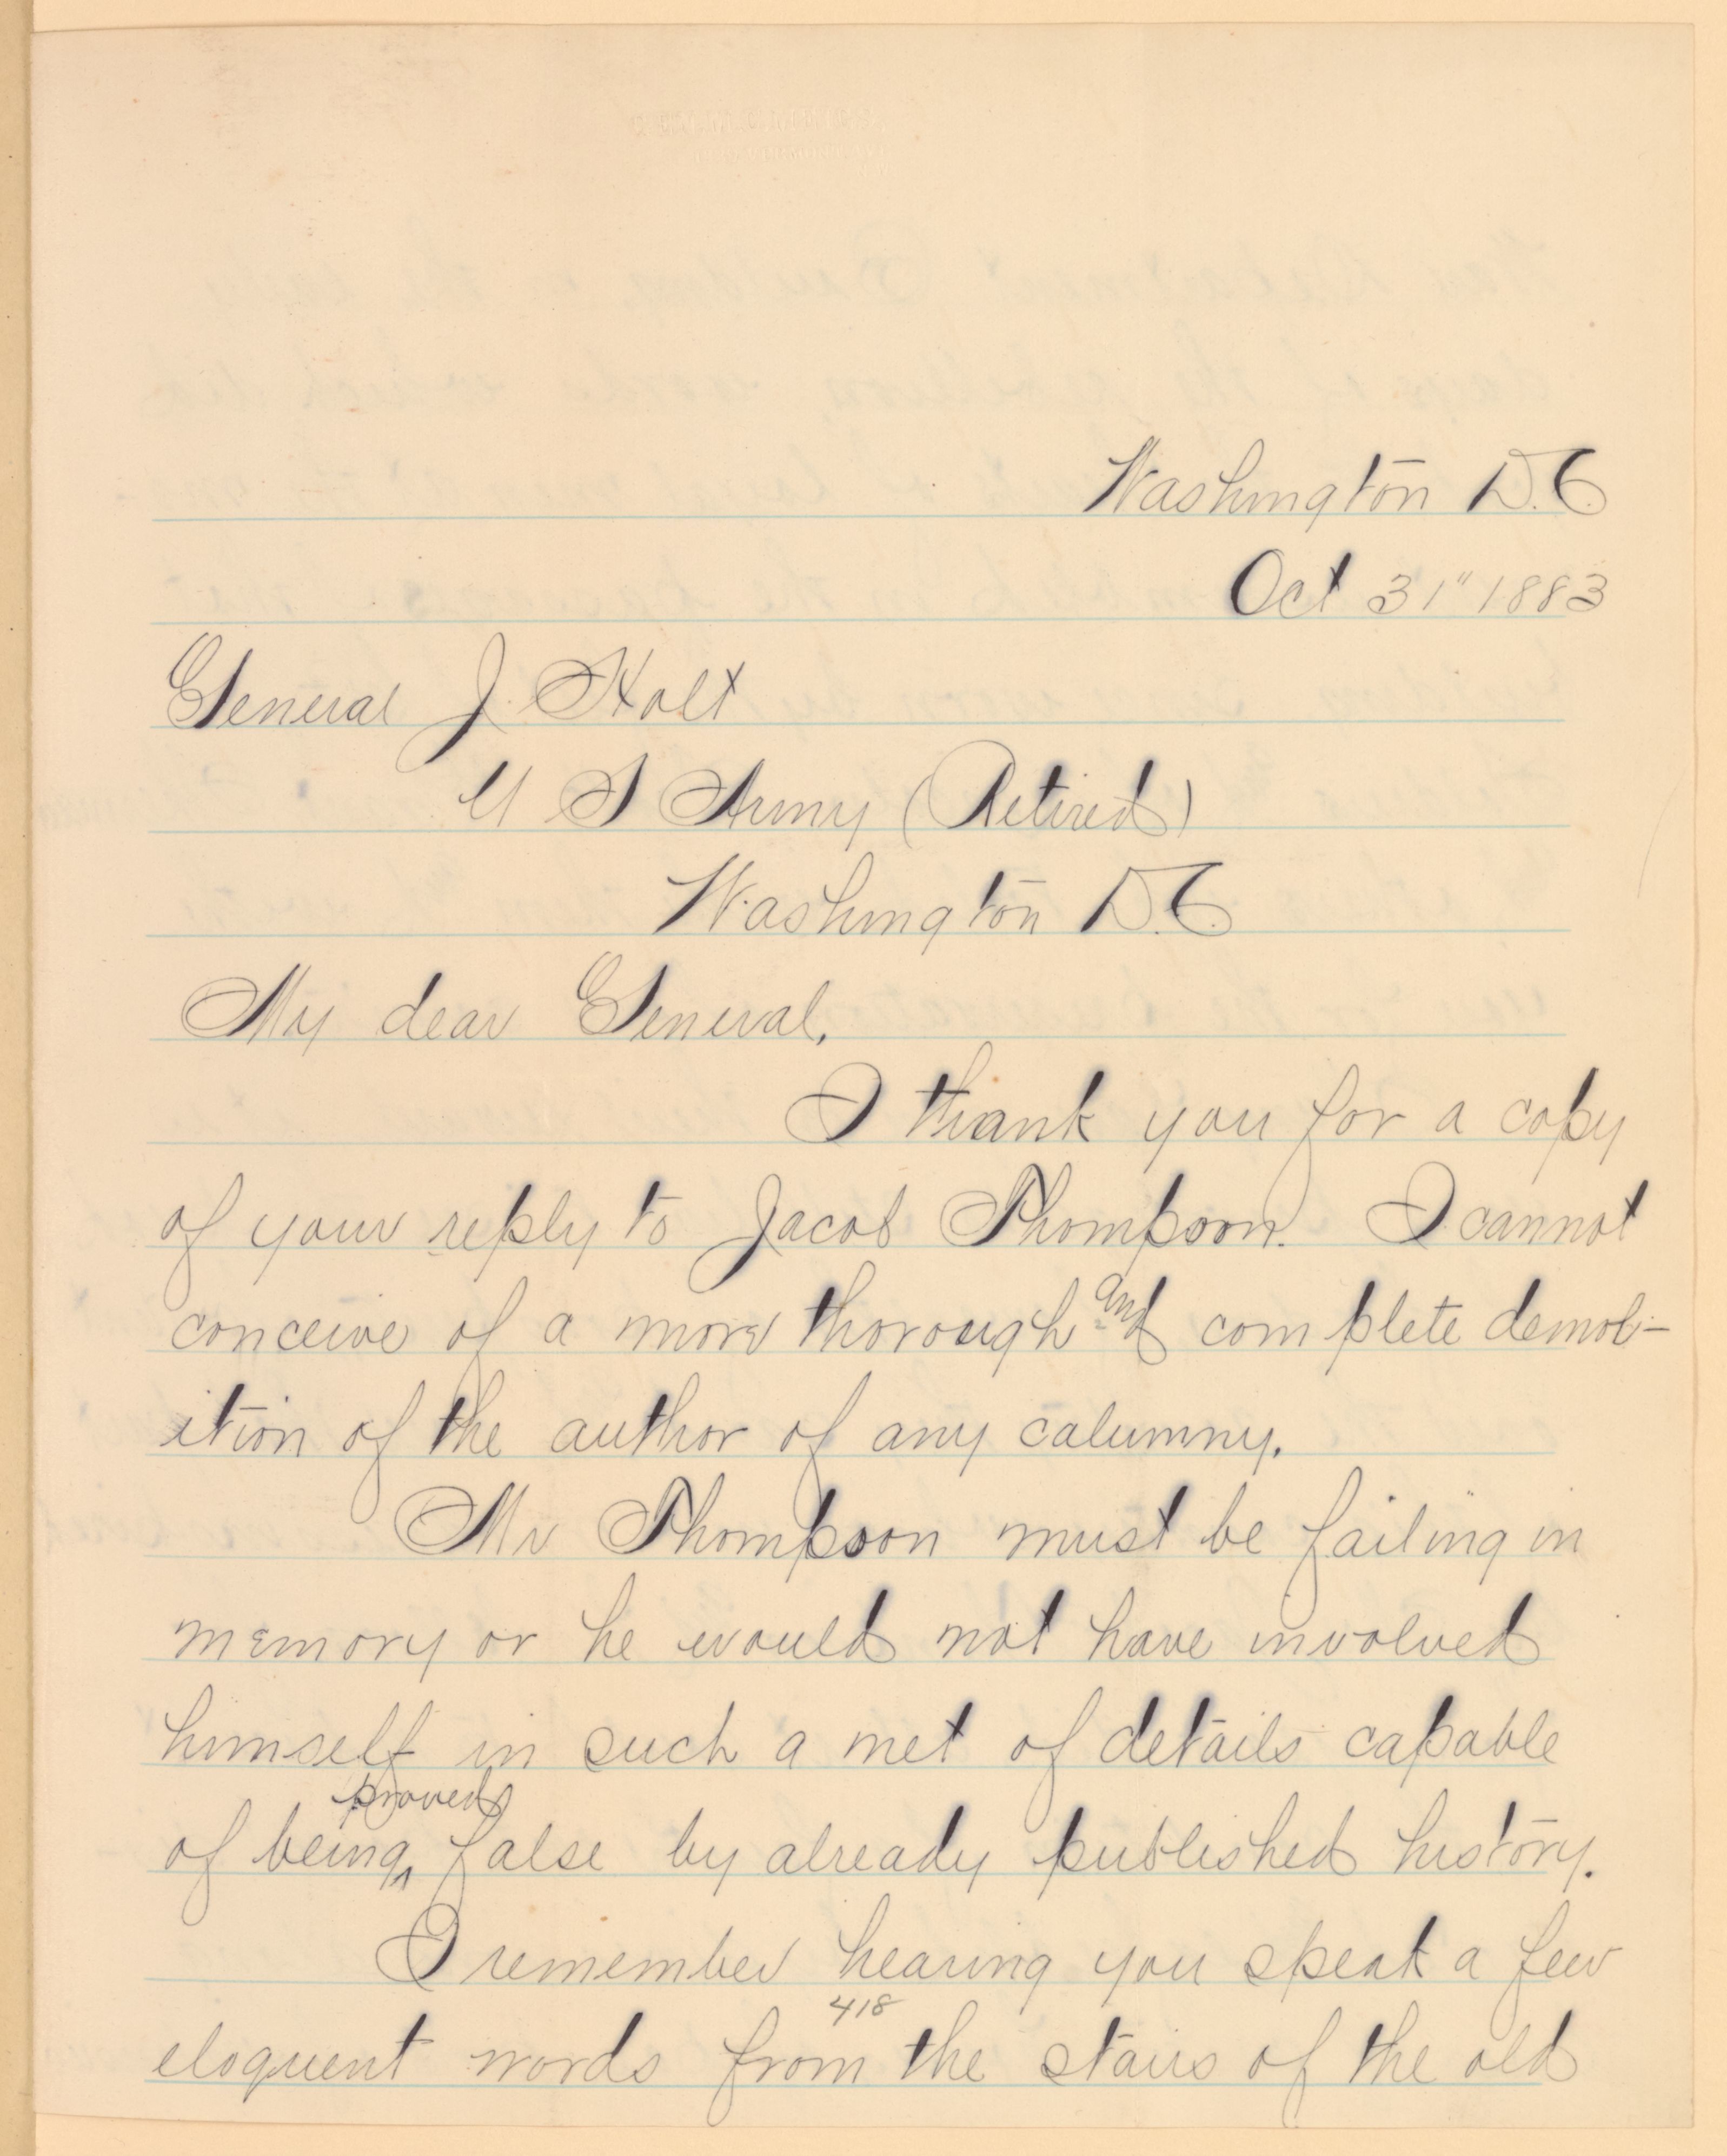 Washington D.C.
Oct 31" 1883
General J. Holt
U S Army (Retired)
Washington D.C.
My dear General,
I thank you for a copy
of your reply to Jacob Thompson. I cannot
conceive of a more thorough and complete demol-
ition of the author of any calumny.
Mr Thompson must be failing in
memory or he would not have involved
himself in such a net of details capable
proved
of being ^ false by already published history.
I remember hearing you speak a few
418
eloquent words from the stairs of the old